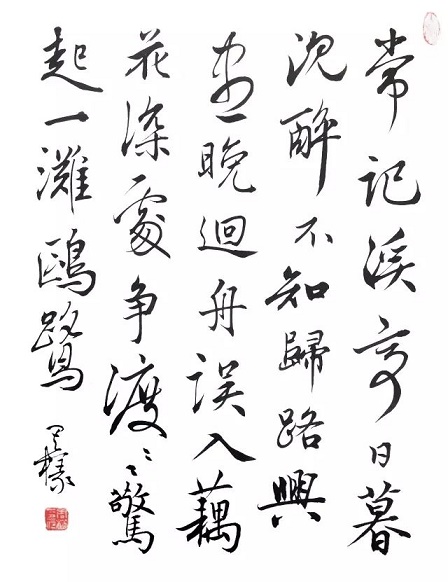 常记溪亭日暮
沈醉不知歸路興
盡晚迴舟误入藕
花深處争渡〻〻驚
起一灘鷗鷺